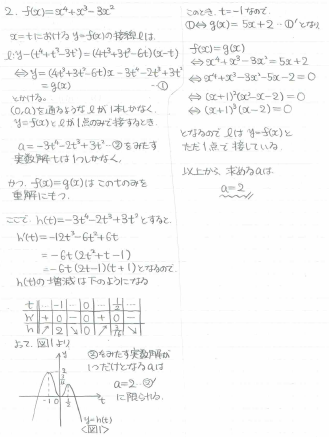 2. f(x)=x⁴+x³-3x²
x=tにおけるy=f(x)の接線ℓは、
ℓ: y-(t⁴+t³-3t²)=(4t³+3t²-6t)(x-t)
⇔y=(4t³+3t²-6t)x-3t⁴-2t³+3t²
=g(x) —①
とかける。
(0,a)を通るようなℓが1本しかなく、
y=f(x)とℓが1点のみで接するとき、
a=-3t⁴-2t³+3t²—②をみたす
実数解tは1つしかなく、
かつ、f(x)=g(x)はこのtのみを
重解にもつ。
ここで h(t)=-3t⁴-2t³+3t²とすると、
h'(t)=-12t³-6t²+6t
=-6t(2t²+t-1)
=-6t(2t-1)(t+1)となるので、
h(t)の増減は下のようになる
t … -1 … 0 … 1/2 …
h' + 0 - 0 + 0 -
h ↗ 2 ↘ 0 ↗ 3/16 ↘
よって、図1より
②をみたす実数解が
1つだけとなるaは
a=2 —②'
に限られる。
y
2
3/16
-1 0 1/2 t
y=h(t)
<図1>
このとき、t=-1なので、
①⇔g(x)=5x+2 …①'となり、
f(x)=g(x)
⇔x⁴+x³-3x²=5x+2
⇔x⁴+x³-3x²-5x-2=0
⇔(x+1)³(x-2)=0
となるのでℓはy=f(x)と
ただ1点で接している。
以上から、求めるaは
a=2